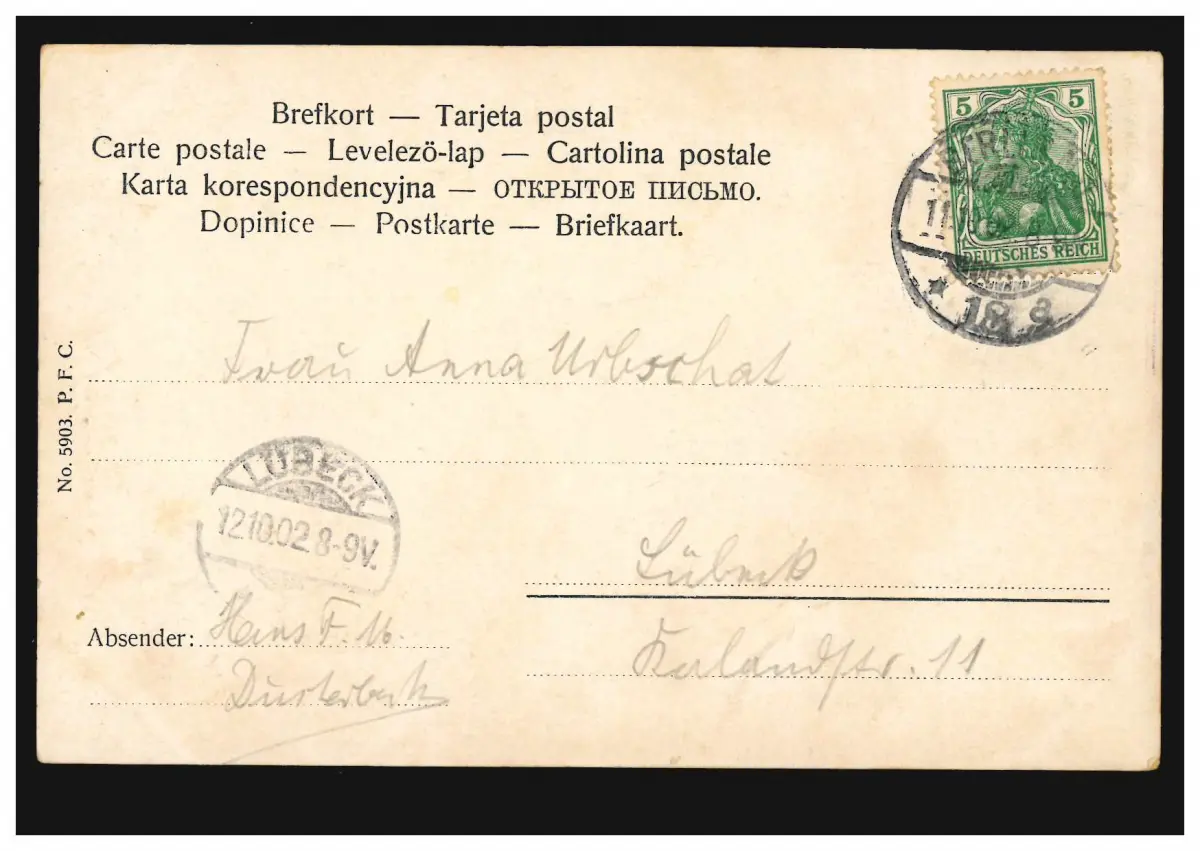 Brefkort — Tarjeta postal
Carte postale — Levelezö-lap — Cartolina postale
Karta korespondencyjna — ОТКРЫТОЕ ПИСЬМО.
Dopinice — Postkarte — Briefkaart.
5 5
DEUTSCHES REICH
18 a
Frau Anna Urbschat
No. 5903. P. F. C.
LÜBECK
12.10.02.8-9V.
Lübeck
Kalandstr. 11
Absender: Hans F.